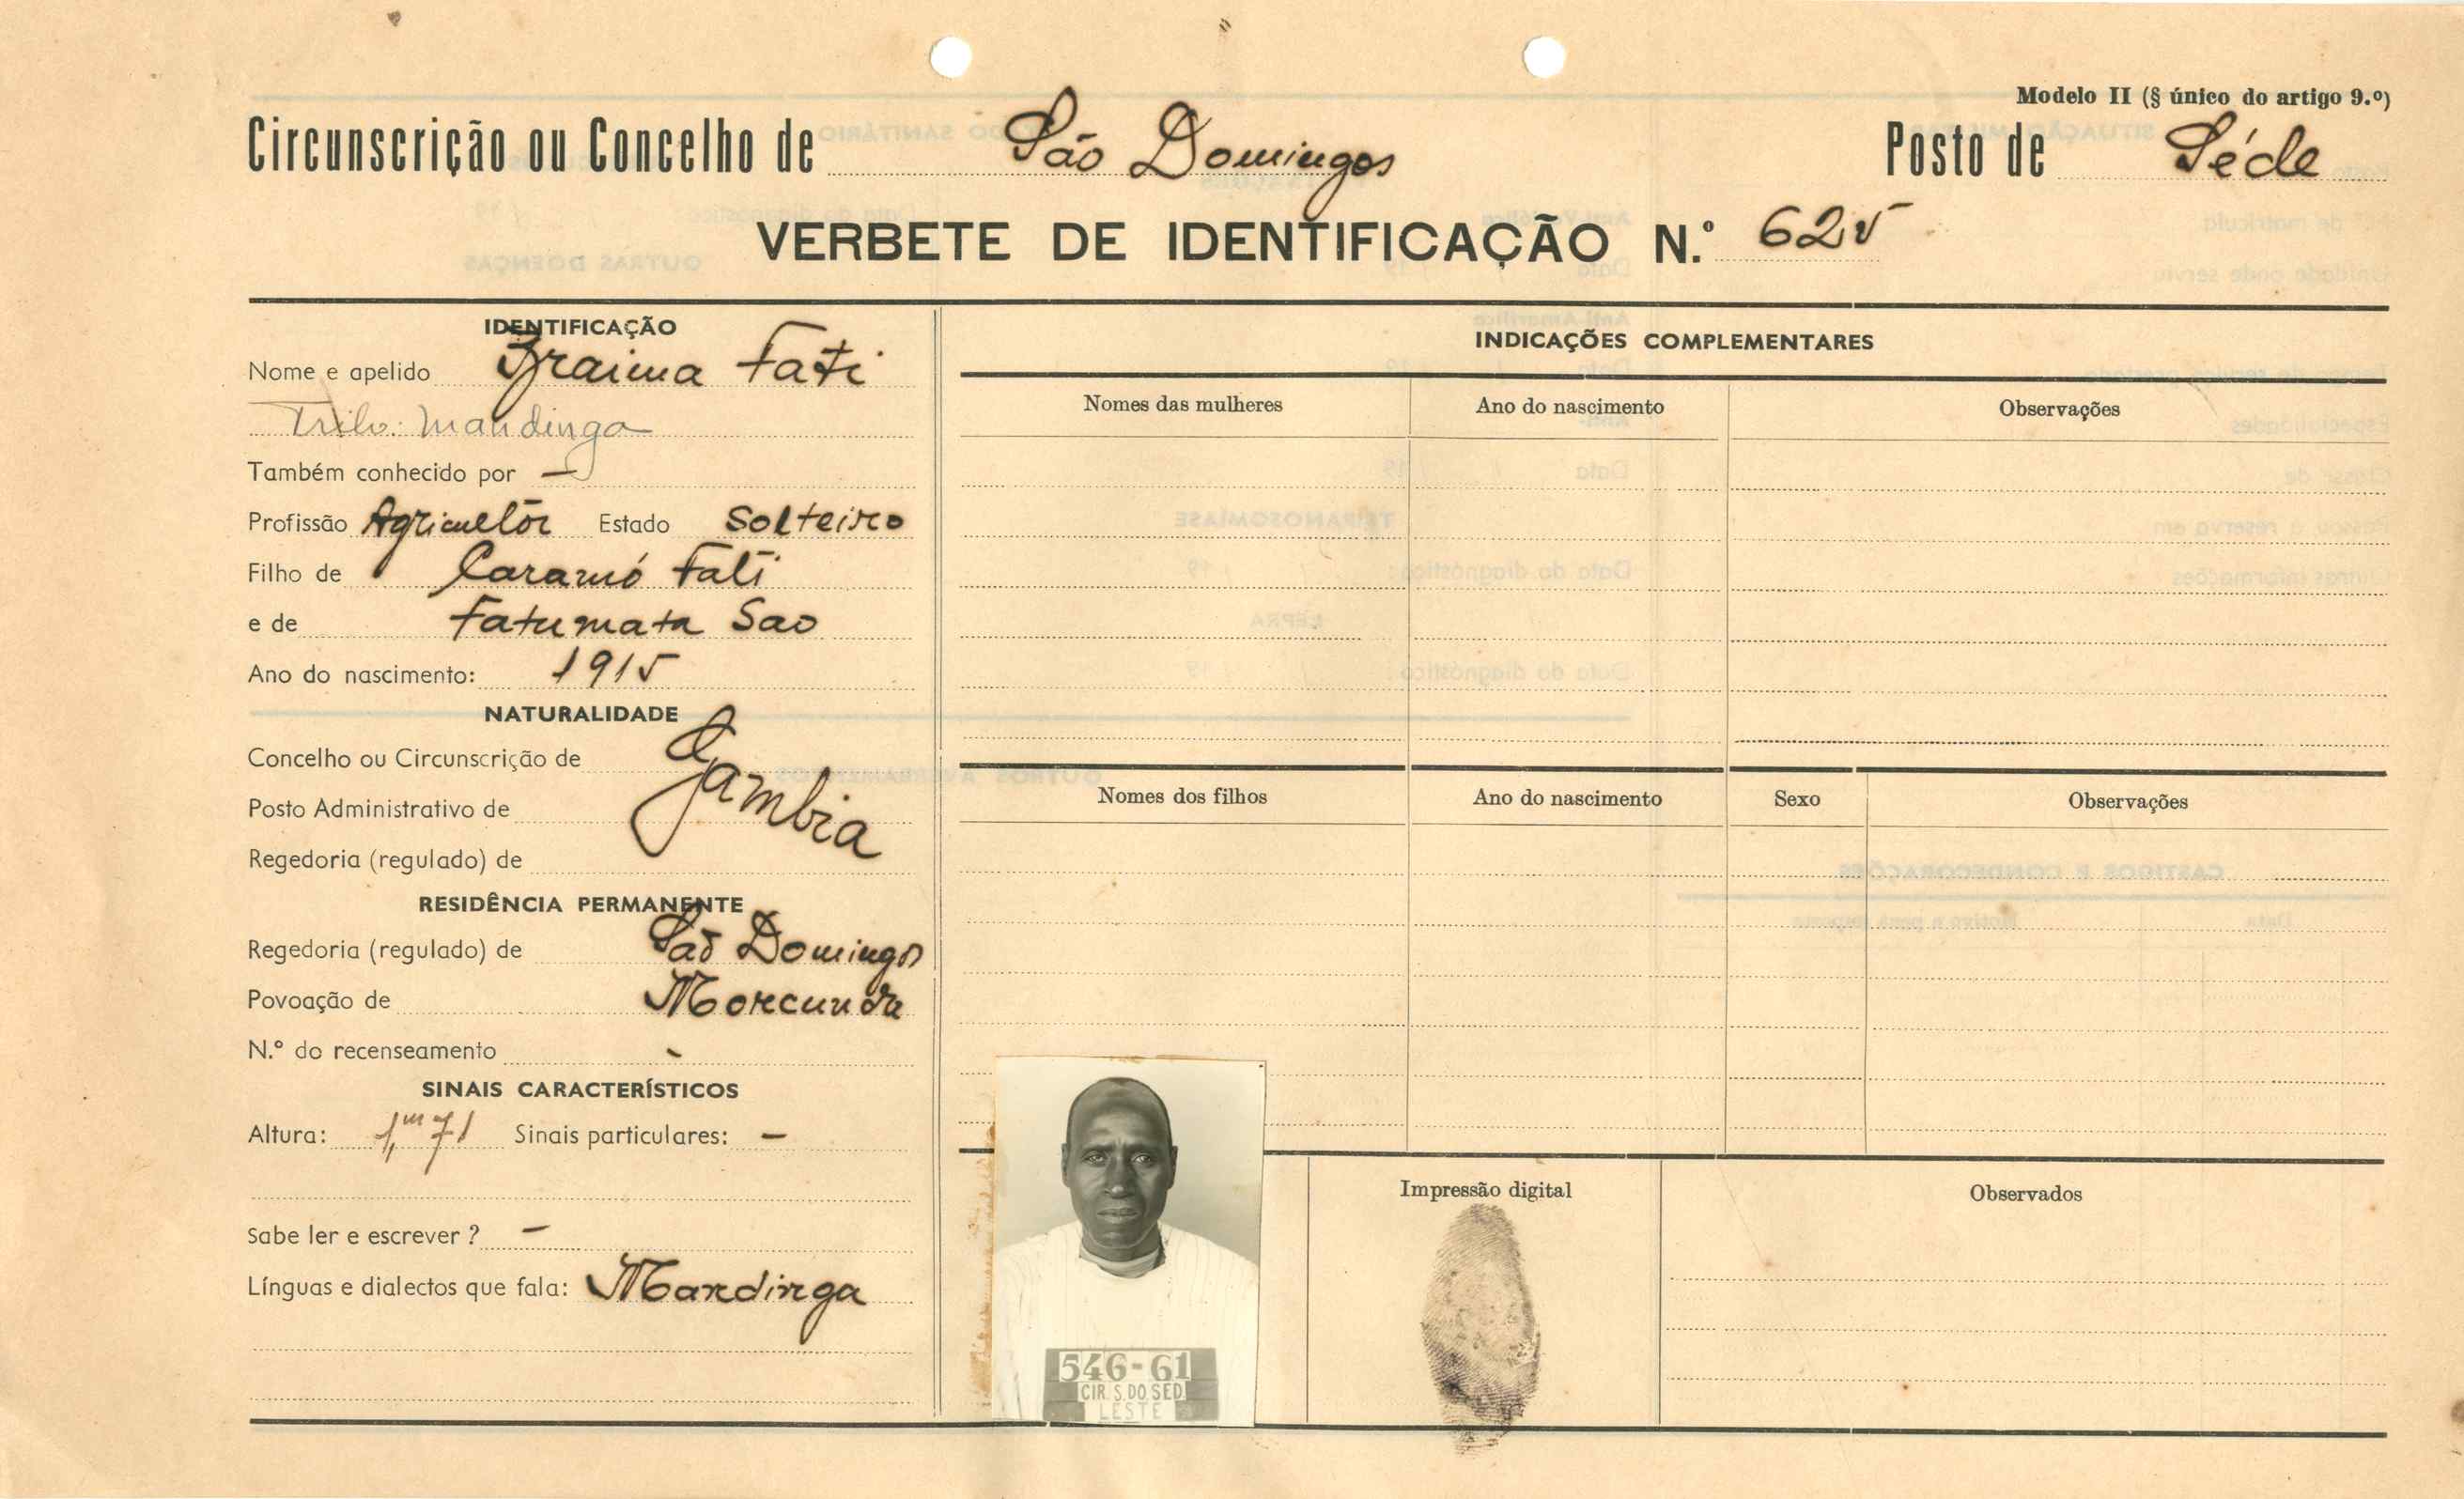 Modelo II (§ único do artigo 9.º)
Circunscrição ou Concelho de São Domingos Posto de Séde
VERBETE DE IDENTIFICAÇÃO N.º 625
IDENTIFICAÇÃO
Nome e apelido Braima Fati
Tribo: Mandinga
Também conhecido por —
Profissão Agricultôr Estado Solteiro
Filho de Caramó Fati
e de Fatumata Sao
Ano do nascimento: 1915
NATURALIDADE
Concelho ou Circunscrição de
Gambia
Posto Administrativo de
Regedoria (regulado) de
RESIDÊNCIA PERMANENTE
Regedoria (regulado) de São Domingos
Povoação de Morcunda
N.º do recenseamento -
SINAIS CARACTERÍSTICOS
Altura: 1,m71 Sinais particulares: —
Sabe ler e escrever ? —
Línguas e dialectos que fala: Mandinga
INDICAÇÕES COMPLEMENTARES
Nomes das mulheres Ano do nascimento Observações
Nomes dos filhos Ano do nascimento Sexo Observações
546-61
CIR. S. DO SED.
LESTE
Impressão digital
Observados